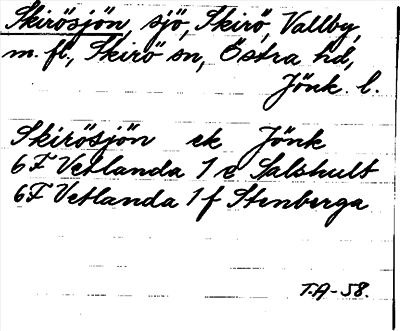 Skirösjön, sjö, Skirö, Vallby,
m. fl., Skirö sn, Östra hd,
Jönk. l.
Skirösjön ek Jönk
6F Vetlanda 1 e Salshult
6F Vetlanda 1 f Stenberga
T.A-58.